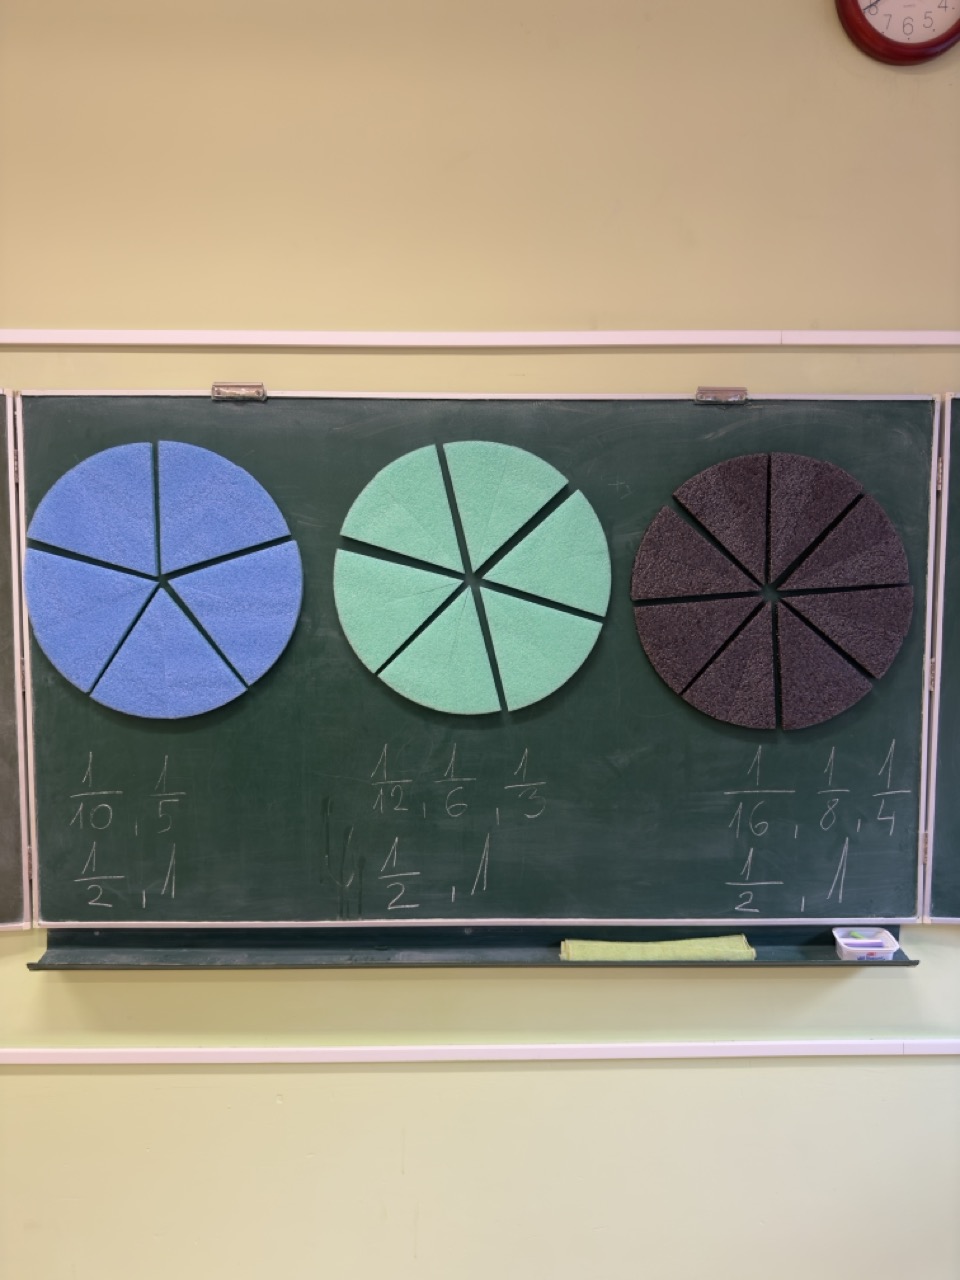 8 7 6 5 4
1/10, 1/5
1/2, 1
1/12, 1/6, 1/3
1/2, 1
1/16, 1/8, 1/4
1/2, 1